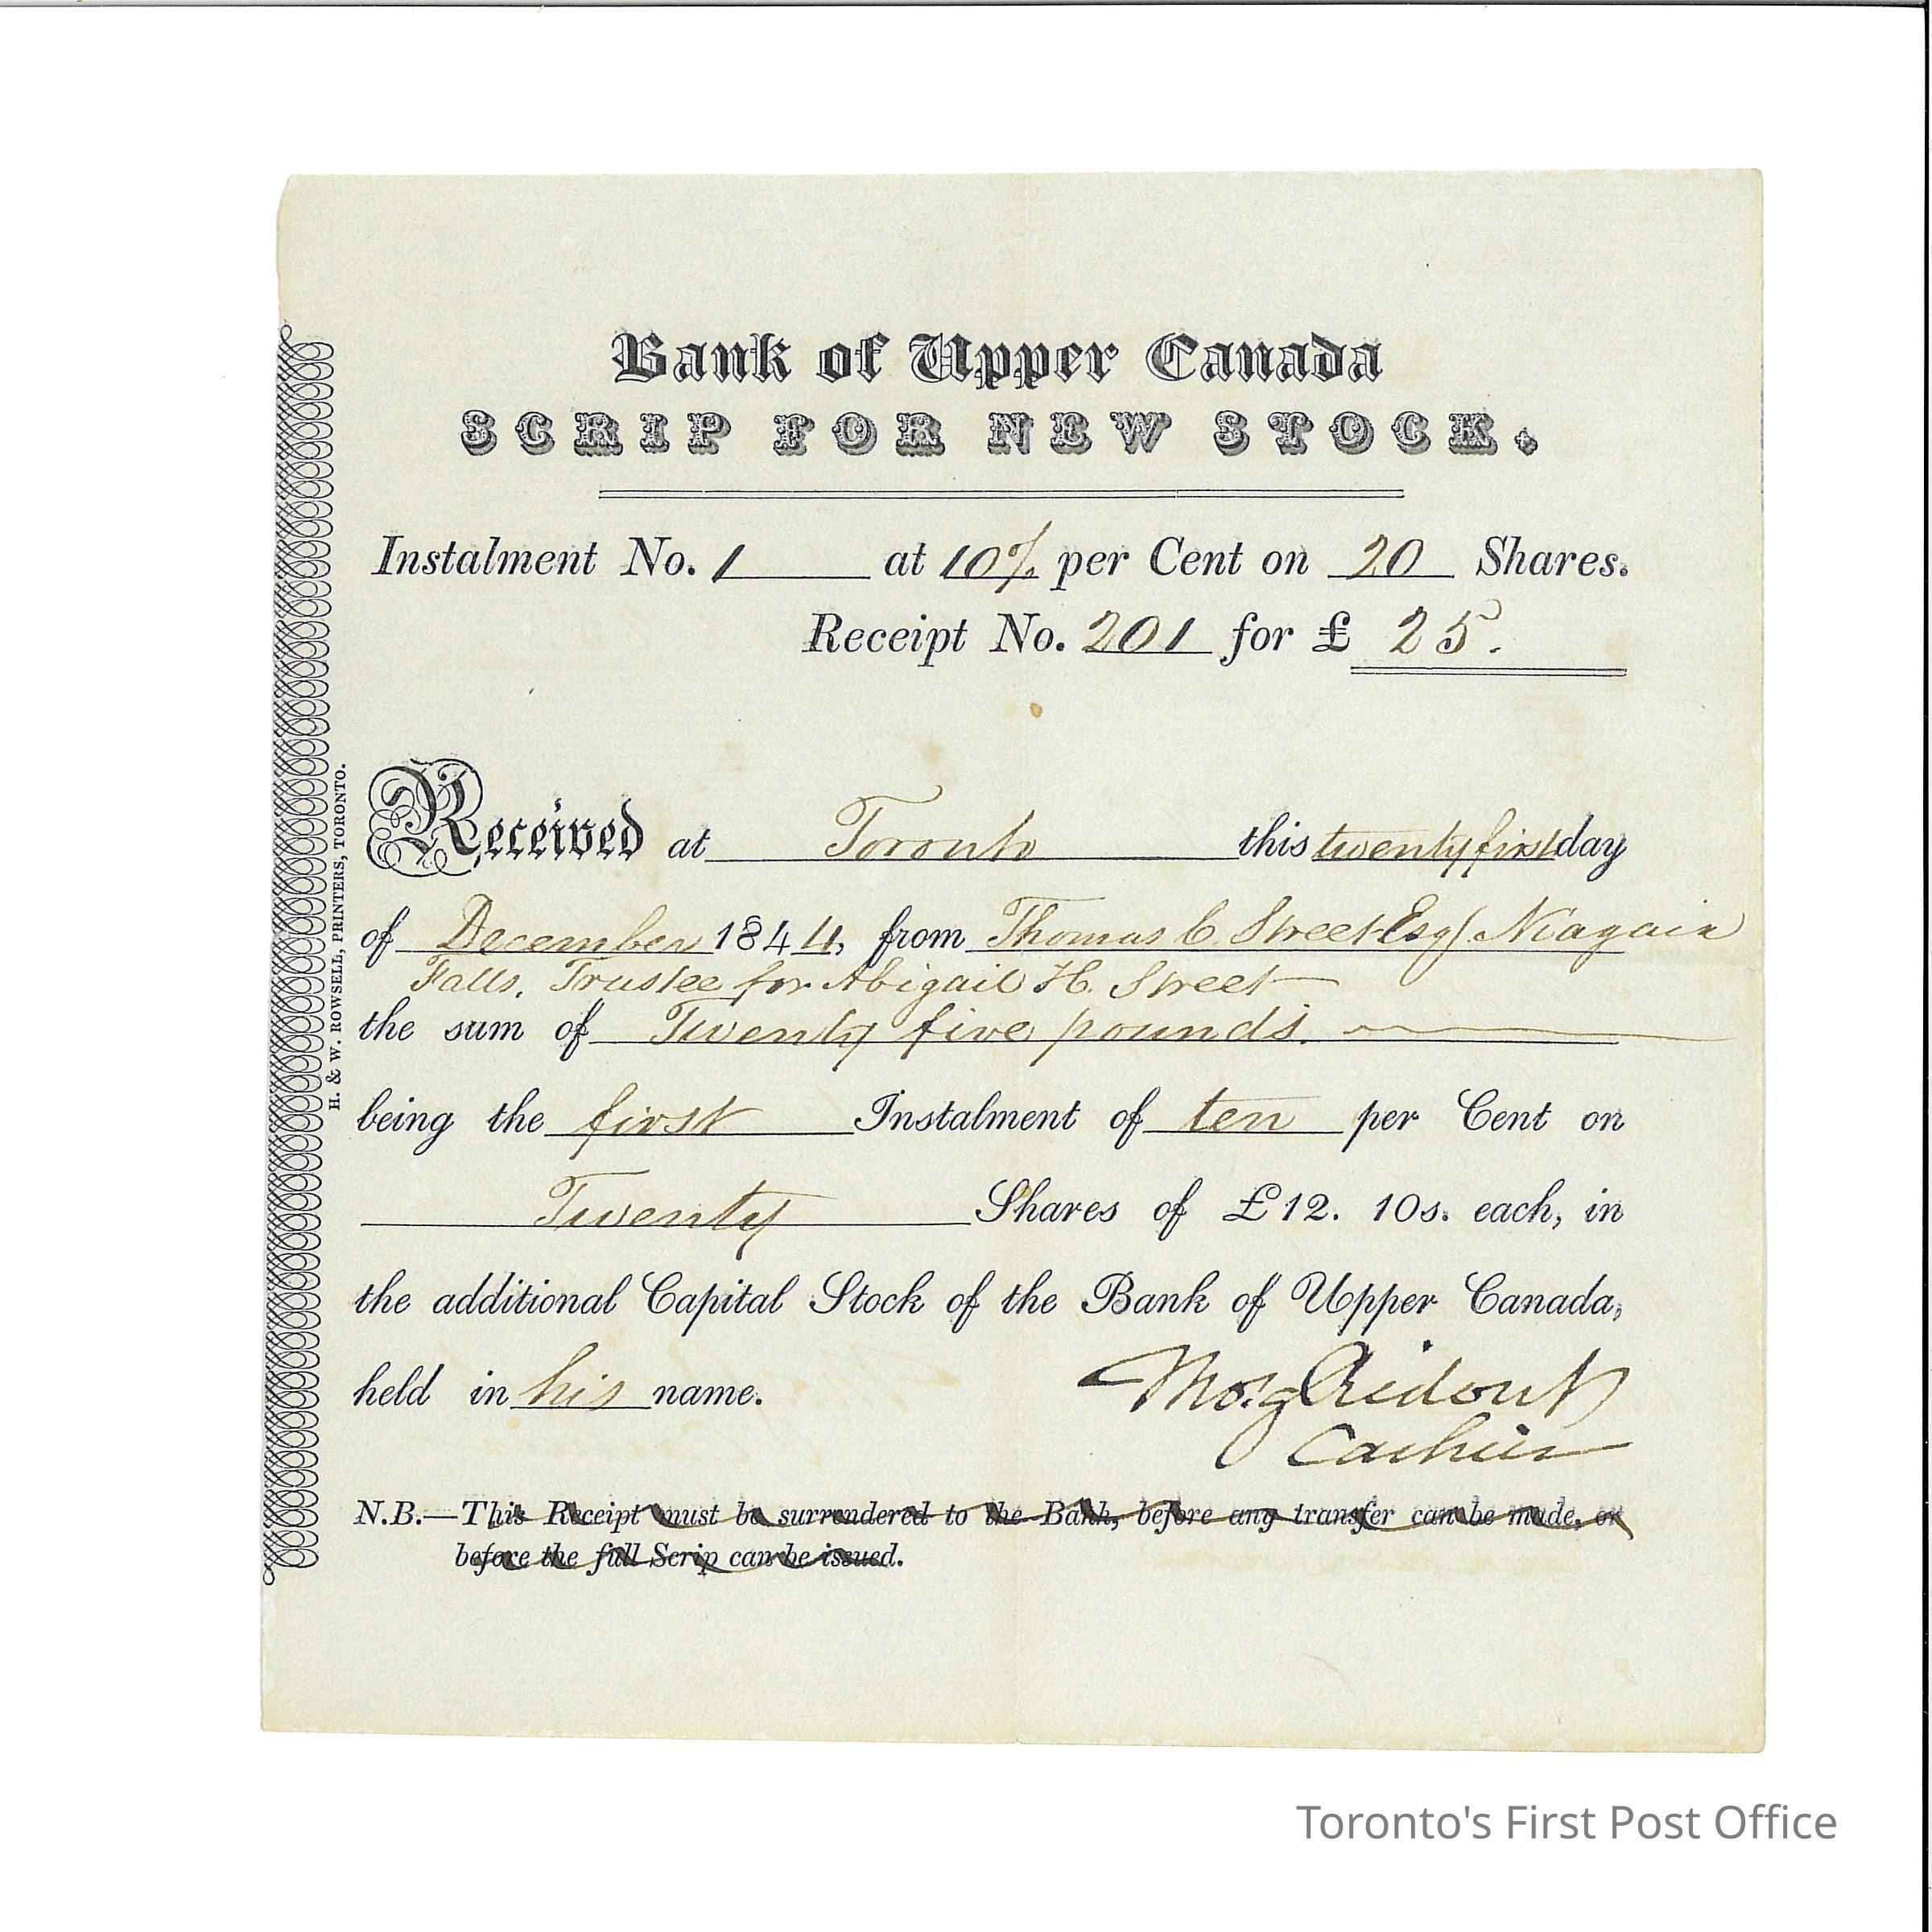 Bank of Upper Canada
SCRIP FOR NEW STOCK.
Instalment No. 1 at 10% per Cent on 20 Shares.
Receipt No. 201 for £ 25.
Received at Toronto this twenty first day
of December 1844, from Thomas C. Street Esq. Niagara
Falls, Trustee for Abigail H. Street
the sum of Twenty five pounds.
being the first Instalment of ten per Cent on
Twenty Shares of £12. 10s. each, in
the additional Capital Stock of the Bank of Upper Canada,
held in his name.
Thos. G. Ridout
Cashier
N.B.—This Receipt must be surrendered to the Bank, before any transfer can be made, or
before the full Scrip can be issued.
H. & W. ROWSELL, PRINTERS, TORONTO.
Toronto's First Post Office